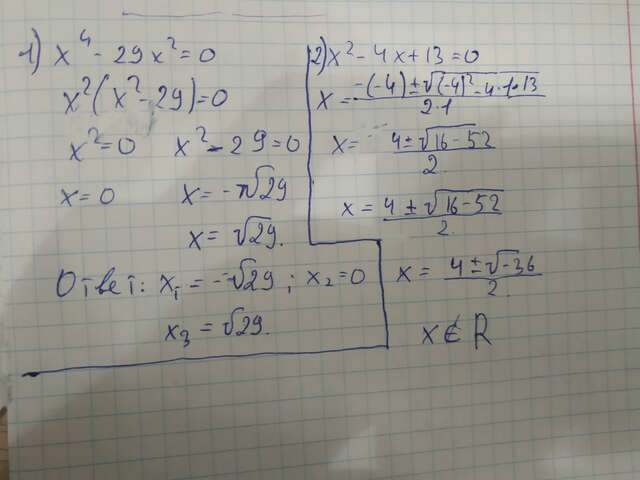 1) x⁴ - 29x² = 0
x²(x² - 29) = 0
x² = 0 x² - 29 = 0
x = 0 x = -√29
x = √29.
Ответ: x₁ = -√29; x₂ = 0
x₃ = √29.
2) x² - 4x + 13 = 0
x = (-(-4) ± √((-4)² - 4·1·13)) / (2·1)
x = (4 ± √(16 - 52)) / 2.
x = (4 ± √(16 - 52)) / 2.
x = (4 ± √-36) / 2.
x ∉ R